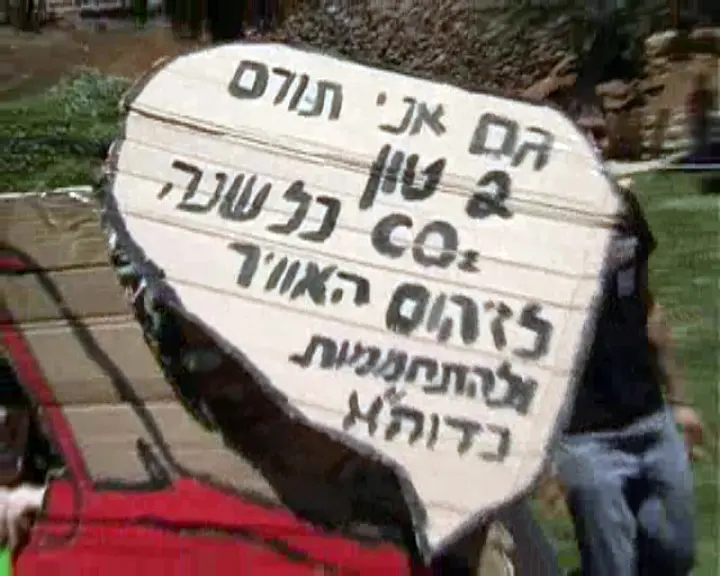 גם אני תורם
2 טון
CO₂ כל שנה
לזיהום האוויר
ולהתחממות
כדוה״א